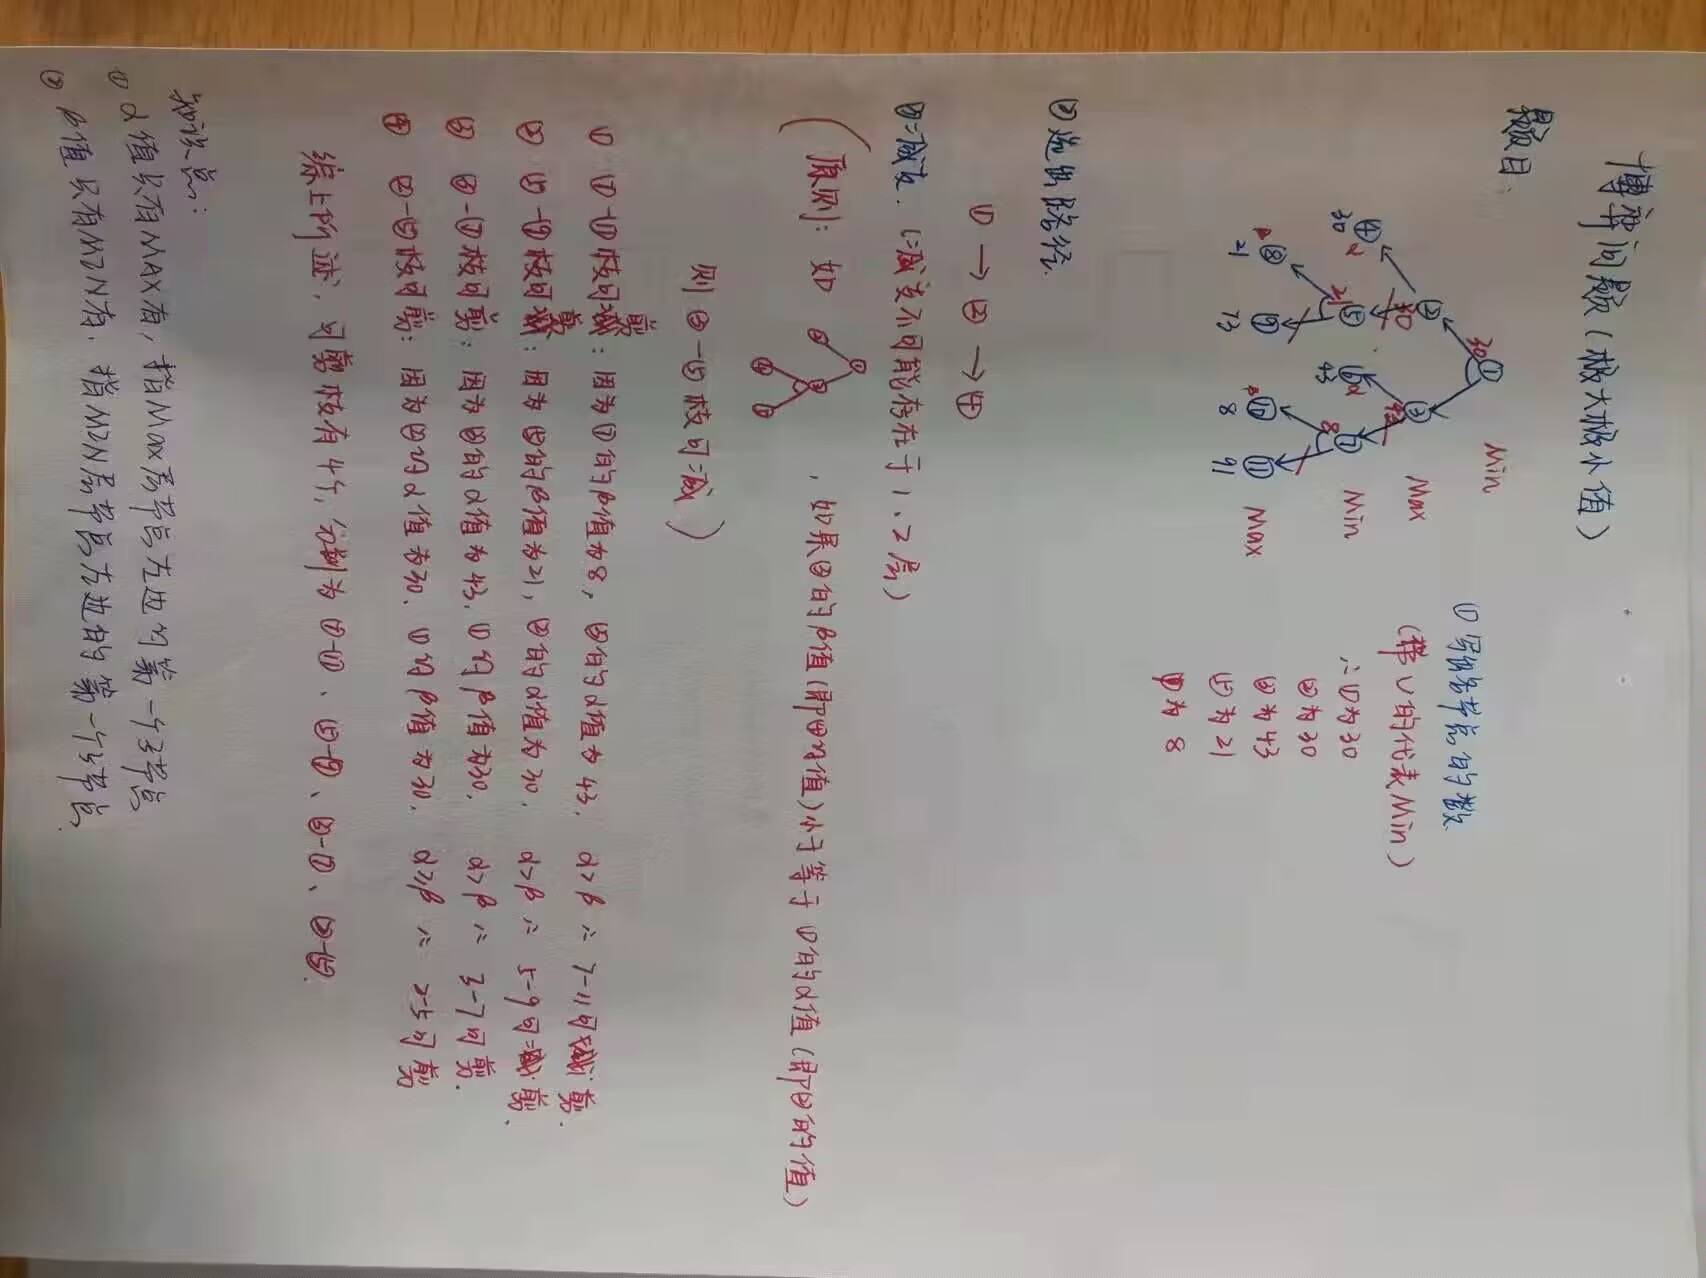 博弈问题(极大极小值)
题目:
30 ① Min
② 30 ③ 43 Max
④ α 30 21 ⑤ ⑥ α 43 8 ⑦ Min
β ⑧ 21 ⑨ 73 β ⑩ 8 ⑪ 91 Max
① 写出各节点的数
(带∪的代表Min)
∴①为30
②为30
③为43
⑤为21
⑦为 8
② 选出路径.
① → ② → ④
③减支. (减支不可能存在于1、2层)
(原则: 如 ① ② ③ ④ ⑤ , 如果③的β值(即④的值)小于等于①的α值(即②的值)
则 ③-⑤ 枝可减)
① ⑦-⑪ 枝可剪: 因为⑦的β值为8, ③的α值为43. α>β ∴ 7-11可剪.
② ⑤-⑨ 枝可剪: 因为⑤的β值为21, ②的α值为30. α>β ∴ 5-9可剪.
③ ③-⑦枝可剪: 因为③的α值为43. ①的β值为30. α>β ∴ 3-7可剪.
④ ②-⑤枝可剪: 因为②的α值为30. ①的β值为30. α≥β ∴ 2-5可剪
综上所述, 可剪枝有4个, 分别为⑦-⑪、⑤-⑨、③-⑦、②-⑤.
知识点:
① α值只有MAX有, 指Max层节点左边的第一个子节点
② β值只有MIN有. 指MIN层节点左边的第一个子节点.